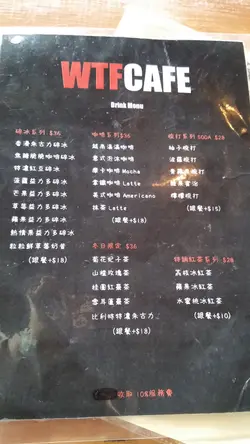 WTFCAFE
Drink Menu
碎冰系列 $36
香滑朱古力碎冰
焦糖脆脆咖啡碎冰
特濃紅豆碎冰
菠蘿益力多碎冰
芒果益力多碎冰
草莓益力多碎冰
蘋果益力多碎冰
熱情果益力多碎冰
粒粒鮮草莓奶昔
(跟餐+$18)
咖啡系列 $36
越南滴滴咖啡
意式泡沫咖啡
摩卡咖啡 Mocha
拿鐵咖啡 Latte
美式咖啡 Americano
抹茶 Latte
(跟餐+$18)
冬日限定 $36
菊花杞子茶
山楂玫瑰茶
桂圓紅棗茶
雪耳蓮棗茶
比利時特濃朱古力
(跟餐+$18)
梳打系列 SODA $28
柚子梳打
波蘿梳打
蘋果賓治
檸檬梳打
(跟餐+$15)
特調紅茶系列 $28
荔枝冰紅茶
蘋果冰紅茶
水蜜桃冰紅茶
(跟餐+$10)
收取 10%服務費